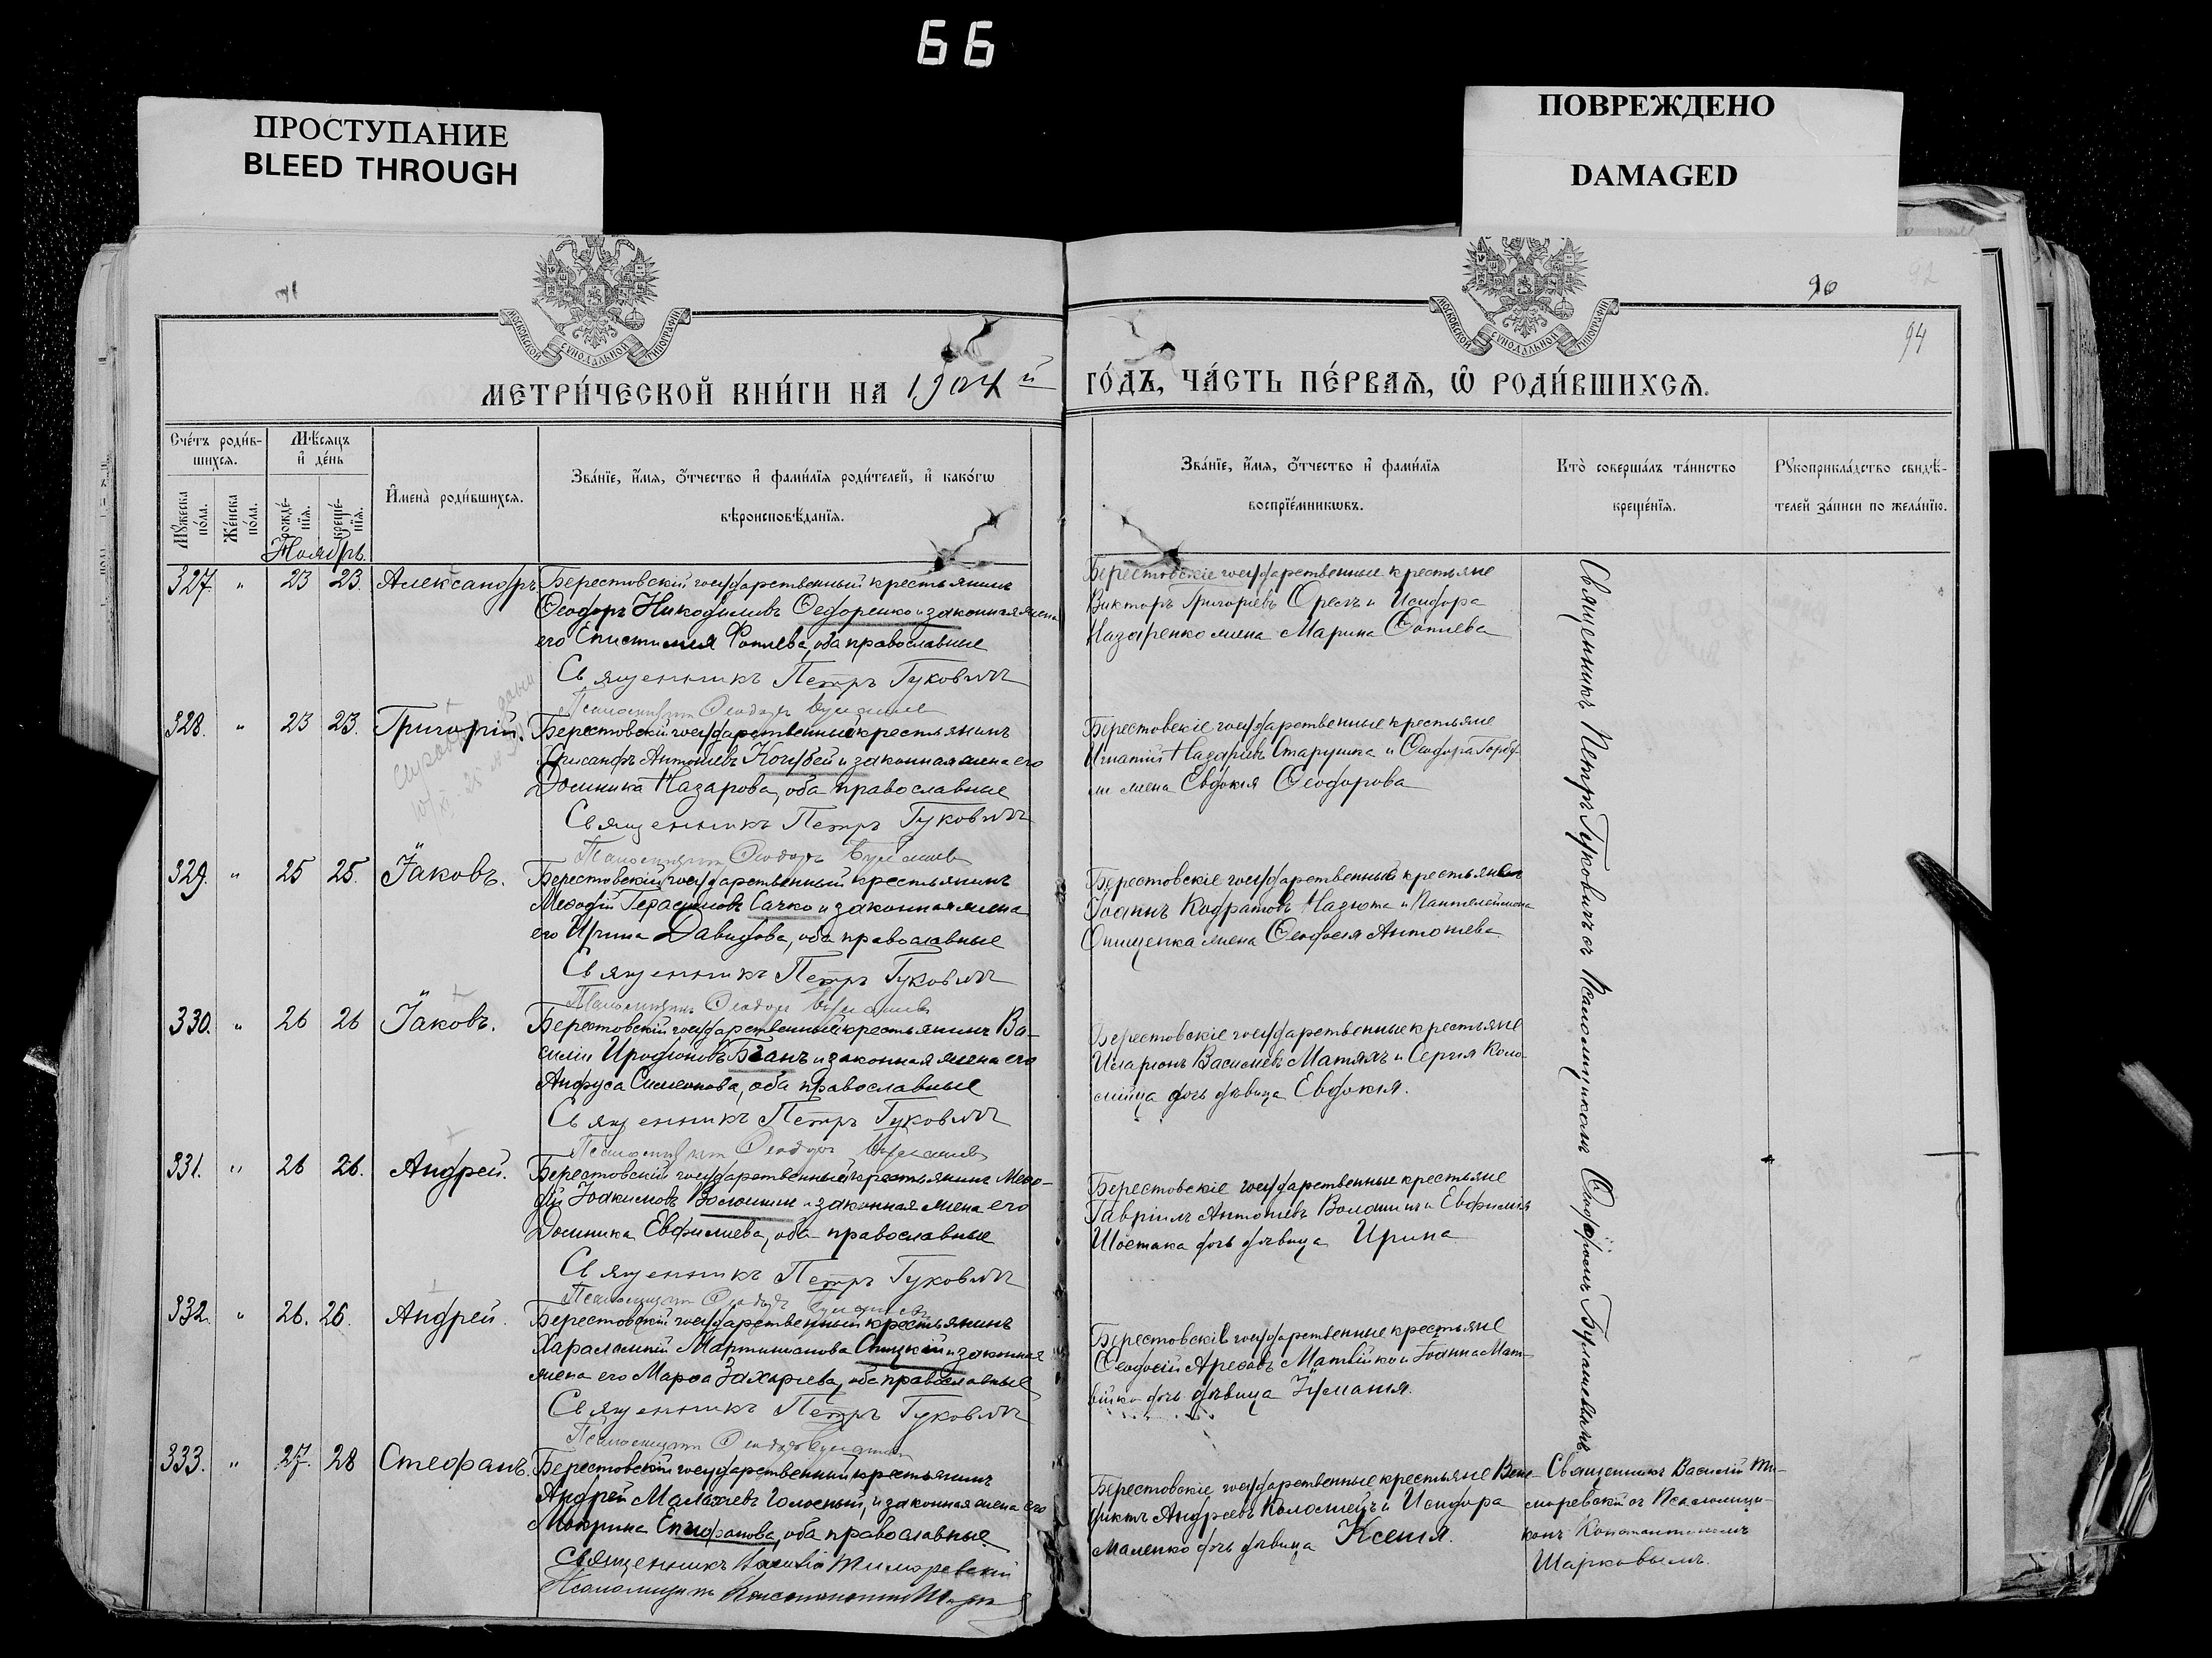 66
ПРОСТУПАНИЕ
BLEED THROUGH
ПОВРЕЖДЕНО
DAMAGED
МОСКОВСКОЙ СѴНОДАЛЬНОЙ ТИПОГРАФІИ
МОСКОВСКОЙ СѴНОДАЛЬНОЙ ТИПОГРАФІИ
94
МЕТРИ́ЧЕСКОЙ КНИ́ГИ НА 1904й
ГО́ДЪ, ЧА́СТЬ ПЕ́РВАѦ, Ѡ РОДИ́ВШИХСѦ.
Сче́тъ роди́в-
шихсѧ.
Мѣ́сѧцъ
и҆ де́нь
Мꙋ́жеска по́ла.
Же́нска по́ла.
рожде́-
нїѧ.
креще́-
нїѧ.
И҆мена̀ роди́вшихсѧ.
Зва́нїе, и҆́мѧ, ѻ҆́тчество и҆ фами́лїѧ роди́телей, и҆ како́гѡ
вѣроисповѣ́данїѧ.
Зва́нїе, и҆́мѧ, ѻ҆́тчество и҆ фами́лїѧ
воспрїе́мникѡвъ.
Кто̀ соверша́лъ та́инство
креще́нїѧ.
Рꙋкоприкла́дство свидѣ́-
телей за́писи по жела́нїю.
Ноябрь.
327. " 23 23. Александръ
Берестовскій государственный крестьянинъ
Ѳеодоръ Никодимовъ Ѳедоренко и законная жена
его Епистимія Фотіева, оба православные
Священникъ Петръ Гуковичъ
Берестовскіе государственные крестьяне
Викторъ Григорьевъ Орелъ и Исидора
Назаренко жена Марина Фотіева
328. " 23 23. Григорій.
Берестовскій государственный крестьянинъ
Хрисанфъ Антоніевъ Кочубей и законная жена его
Домника Назарова, оба православные
Священникъ Петръ Гуковичъ
Берестовскіе государственные крестьяне
Игнатій Назаріевъ Старушка и Ѳеодора
жена Евдокія Ѳеодорова
329. " 25 25. Іаковъ.
Берестовскій государственный крестьянинъ
Меѳодій Герасимовъ Сачко и законная жена
его Ирина Давидова, оба православные
Священникъ Петръ Гуковичъ
Берестовскіе государственный крестьянин
Іоаннъ Кодратовъ Назюта и Пантелеймона
Онищенка жена Ѳеодосія Антоніева
330. " 26 26 Іаковъ.
Берестовскій государственный крестьянинъ Ва-
силій Иродіоновъ Бганъ и законная жена его
Анфуса Симеонова, оба православные
Священникъ Петръ Гуковичъ
Берестовскіе государственные крестьяне
Иларіонъ Васильевъ Матяхъ и Сергія Коло-
мійца дочь дѣвица Евдокія.
331. " 26 26. Андрей.
Берестовскій государственный крестьянинъ Меѳо-
дій Іоакимовъ Волошинъ и законная жена его
Домника Евфиміева, оба православные
Священникъ Петръ Гуковичъ
Берестовскіе государственные крестьяне
Гавріилъ Антоніевъ Волошинъ и Евфимія
Шостака дочь дѣвица Ирина
332. " 26. 26. Андрей.
Берестовскій государственный крестьянинъ
Харалампій Мартиніанова Спицкій и законная
жена его Марѳа Захаріева, оба православные
Священникъ Петръ Гуковичъ
Берестовскіе государственные крестьяне
Ѳеодосій Матвійко и Іоанна Мат-
війко дочь дѣвица Іуліанія.
333. " 27. 28 Стефанъ.
Берестовскій государственный крестьянинъ
Андрей Малахіевъ Голосный, и законная жена его
Мокрина Епифанова, оба православные.
Священникъ Василій Тиморевскій
Псаломщикъ Константинъ
Берестовскіе государственные крестьяне Вене-
диктъ Андреевъ Коломіецъ и Исидора
Маленко дочь дѣвица Ксенія.
Священникъ Петръ Гуковичъ съ Псаломщикомъ Ѳеодоромъ
Священникъ Василій Ти-
моревскій съ Псаломщи-
комъ Константиномъ
Шарковымъ.